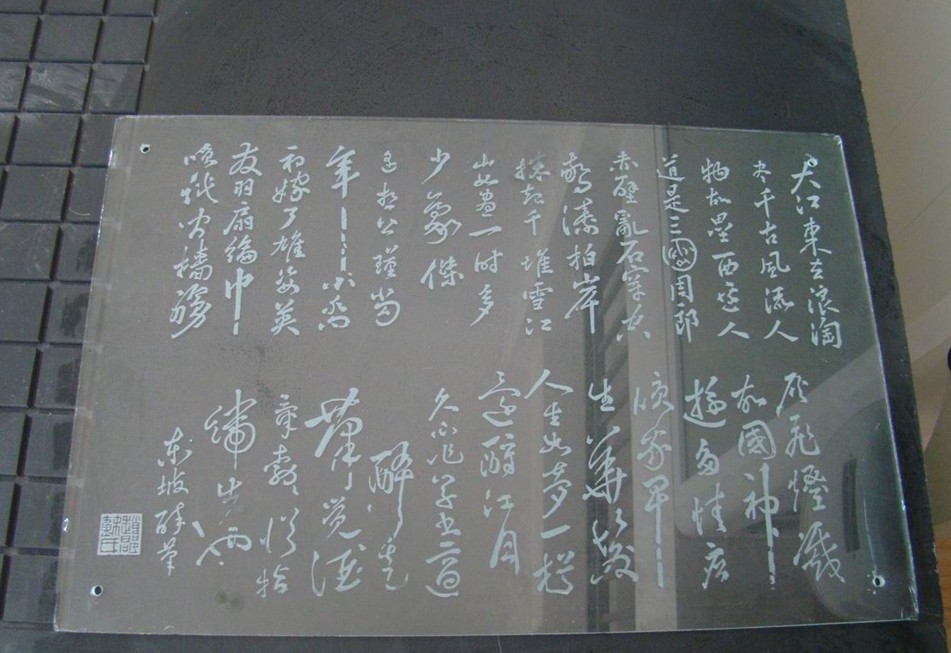 大江東去浪淘
盡千古風流人
物故壘西邊人
道是三國周郎
赤壁亂石穿空
驚濤拍岸
捲起千堆雪江
山如畫一時多
少豪傑
遙想公瑾當
年小喬
初嫁了雄姿英
發羽扇綸巾
談笑間檣艣
灰飛煙滅
故國神
遊多情應
笑我早
生華髮
人生如夢一樽
還酹江月
久不作草書適
醉走
筆覺酒
氣勃勃從指
端出也
東坡醉筆